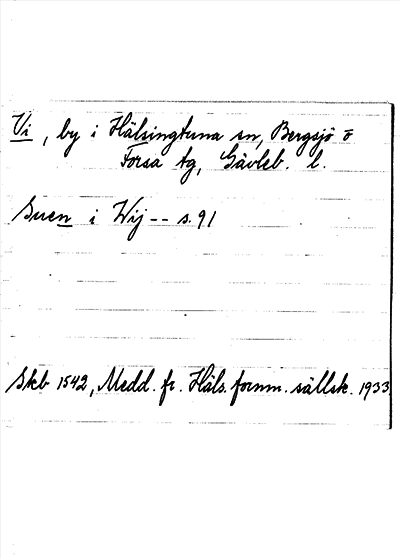 Vi, by i Hälsingtuna sn, Bergsjö o
Forsa tg, Gävleb. l.
Suen i Wij -- s. 91
Skb 1542, Medd. fr. Häls. fornm. sällsk. 1933